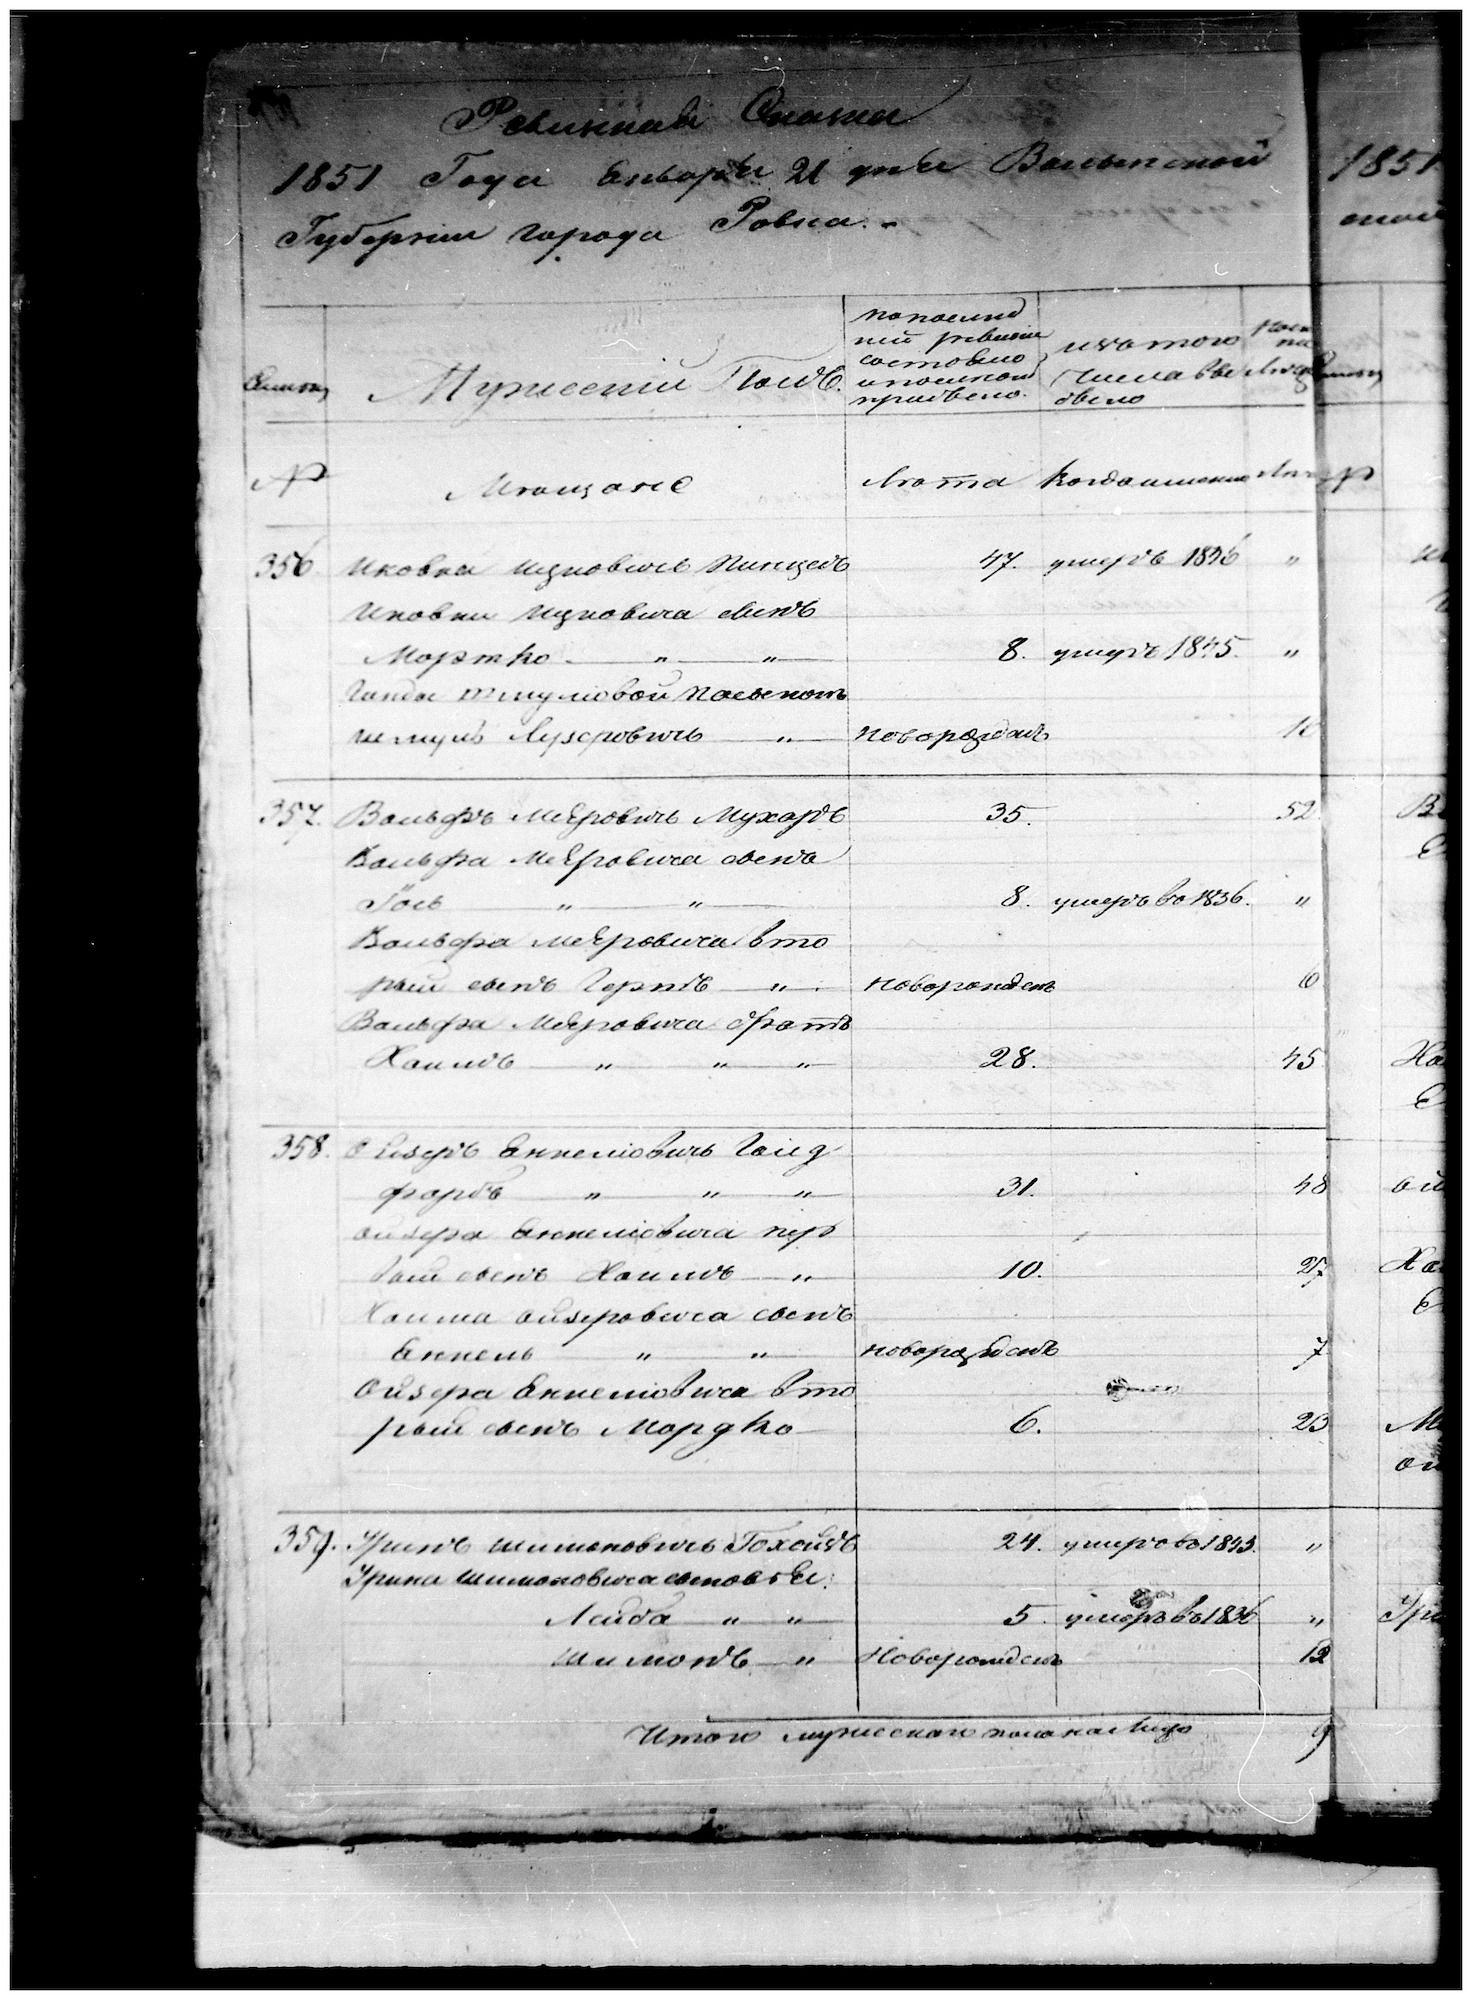 Ревизская Сказка
1851 Года Января 21 дня Волынской
Губернии города Ровна.
1851
Мужеский Полъ.
по послед
ней ревизіи
состояло
и после того
прибыло.
изъ того
числа вы
было
№
Мещане
Лѣта
Когда именно
Лѣта
356
Иковка Ицковичь
47.
умеръ 1846
"
Иковки Ицковича сынъ
Мортко " "
8.
умеръ 1845.
"
Шмулъ Лузеровичь "
новорожденъ
357.
Вольфъ Меѣровичь Мухаръ
35.
52
Вольфа Меѣровича сынъ
Іось " "
8.
умеръ въ 1836.
"
Вольфа Меѣровича вто
рый сынъ Гершъ "
новорожденъ
Вольфа Меѣровича братъ
Хаимъ " " "
28.
45
358.
Ойзеръ Янкелювичь Голд
фарбъ " " "
31.
48
Ойзера Янкелювича пер
вый сынъ Хаимъ "
10.
27
Хаима Ойзеровича сынъ
Янкель " "
новорожденъ
7
Ойзера Янкелювича вто
рый сынъ Мордко
6.
23
359.
Уринъ Шимоновичь
24.
умеръ въ 1843.
"
Урина Шимоновича сыновья:
Лейба " "
5.
умеръ въ 1836
"
Шимонъ "
Новорожденъ
12
Итого мужескаго пола на лицо
9